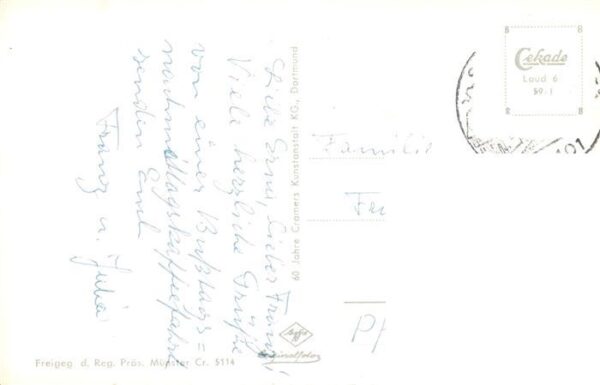 Liebe Erni, Lieber Franz!
Viele herzliche Grüße
von einer Bußtags=
nachmittagskaffeefahrt
senden Euch
Franz u. Julia
60 Jahre Cramers Kunstanstalt KG., Dortmund
Cekade
Laud 6
59. I
Familie
Pf
Agfa
Originalfoto
Freigeg d. Reg. Präs. Münster Cr. 5114